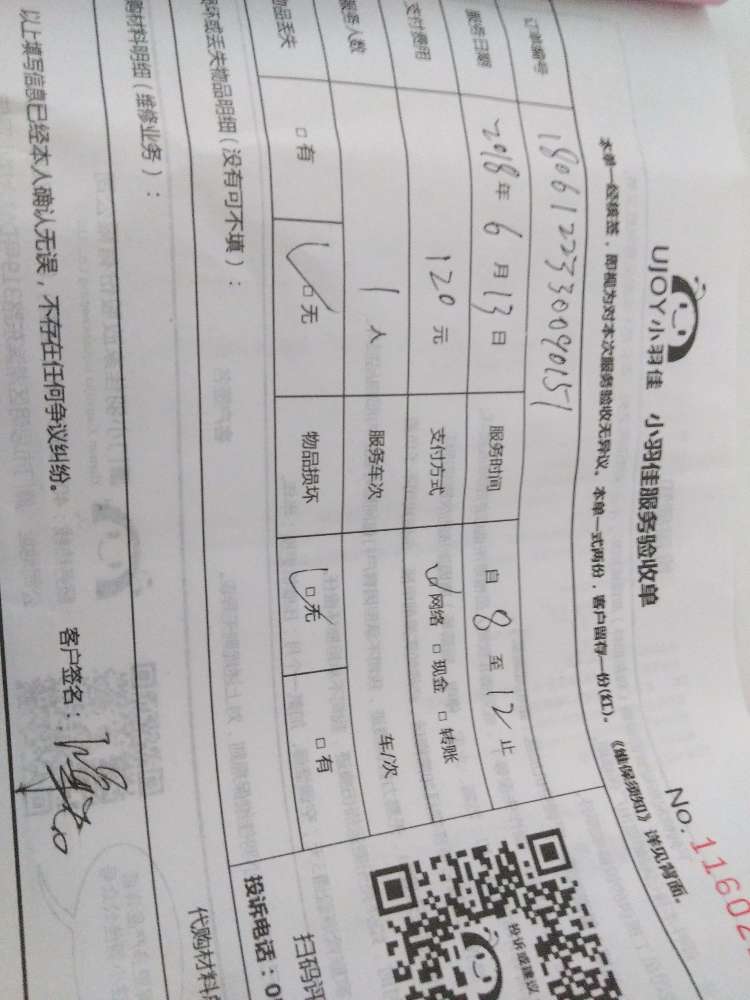 UJOY小羽佳 小羽佳服务验收单
No. 11602
本单一经核签，即视为对本次服务验收无异议。本单一式两份，客户留存一份(红)。 《维保须知》详见背面。
订单编号 18061223300090151
服务日期 2018年6月13日 服务时间 自8至12止
支付费用 120元 支付方式 ✓□网络 □现金 □转账
服务人数 1人 服务车次 车/次
物品丢失 □有 ✓□无 物品损坏 ✓□无 □有
损坏或丢失物品明细（没有可不填）：
购材料明细（维修业务）：
代购材料
以上填写信息已经本人确认无误，不存在任何争议纠纷。 客户签名：
投诉或建议
扫码评
投诉电话：0